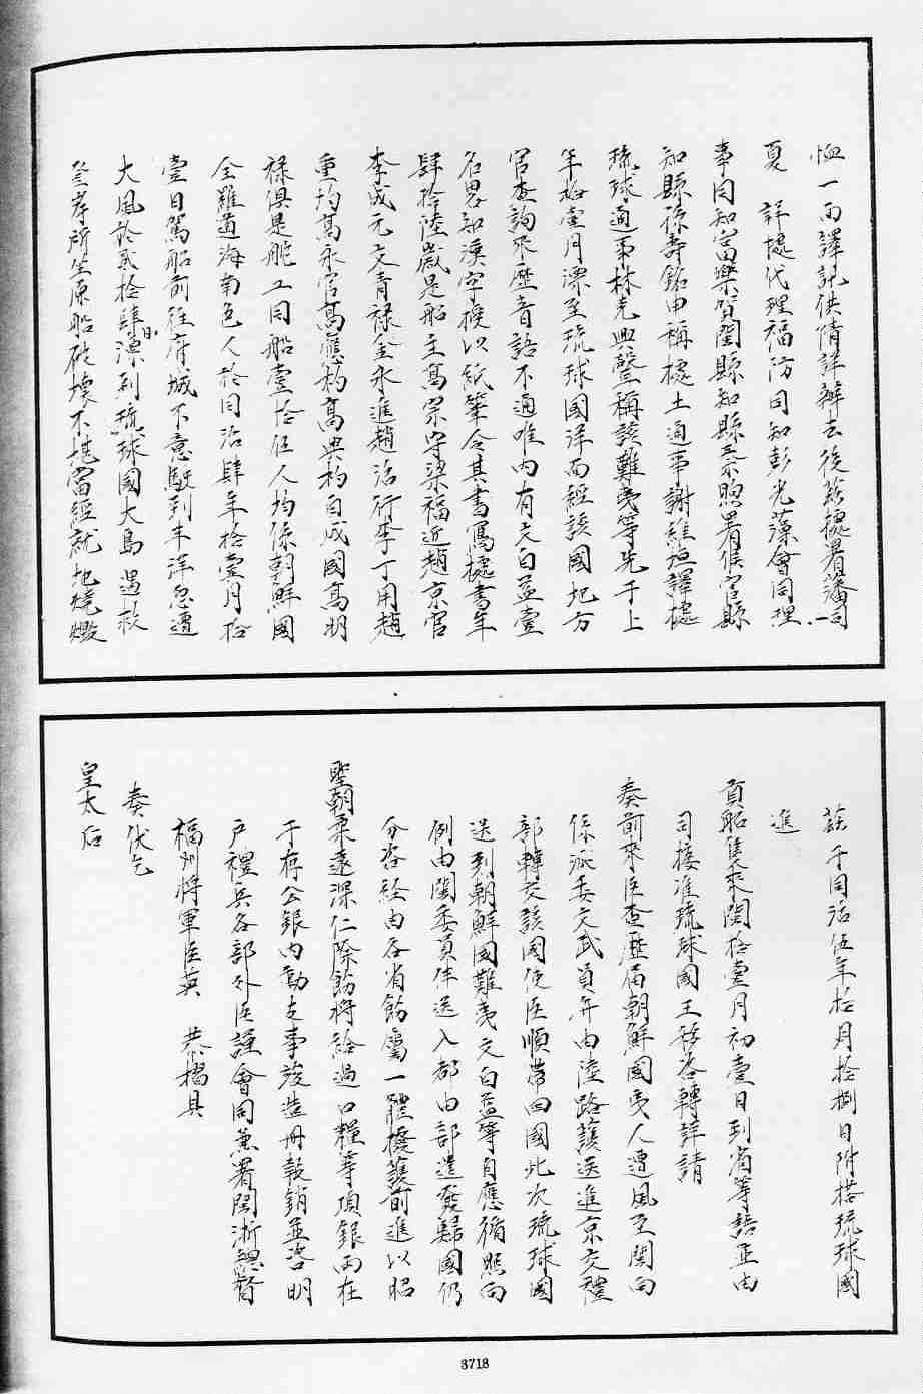 恤一面譯訊供情詳辦去後茲據署藩司
夏　詳據代理福防同知彭光藻會同理
事同知富樂賀閩縣知縣秦煦署侯官縣
知縣孫壽銘申稱據土通事謝維垣譯據
琉球通事林克興聲稱該難夷等先于上
年拾壹月漂至琉球國洋面經該國地方
官查詢來歷音語不通唯內有文白益壹
名畧知漢字授以紙筆令其書寫據書年
肆拾陸歲是船主高宗守梁福近趙京官
李成元文青祿金永進趙治行李丁用趙
重均高永官高應杓高典杓自成國高明
祿俱是舵工同船壹拾伍人均係朝鮮國
全羅道海南邑人於同治肆年拾壹月拾
壹日駕船前往府城不意駛到半洋忽遭
大風於貳拾肆日漂到琉球國大島遇救
登岸所坐原船破壞不堪當經就地燒燬
茲于同治伍年拾月拾捌日附搭琉球國
進
貢船隻來閩拾壹月初壹日到省等語並由
司接准琉球國王移咨轉詳請
奏前來臣查歷屆朝鮮國夷人遭風至閩向
係派委文武員弁由陸路護送進京交禮
部轉交該國使臣順帶回國此次琉球國
送到朝鮮國難夷文白益等自應循照向
例由閩委員伴送入都由部遣發歸國仍
分咨經由各省飭屬一體撥護前進以昭
聖朝柔遠深仁除飭將給過口糧等項銀兩在
于存公銀內動支事竣造冊報銷並咨明
戶禮兵各部外臣謹會同兼署閩浙總督
福州將軍臣英　恭摺具
奏伏乞
皇太后
3713